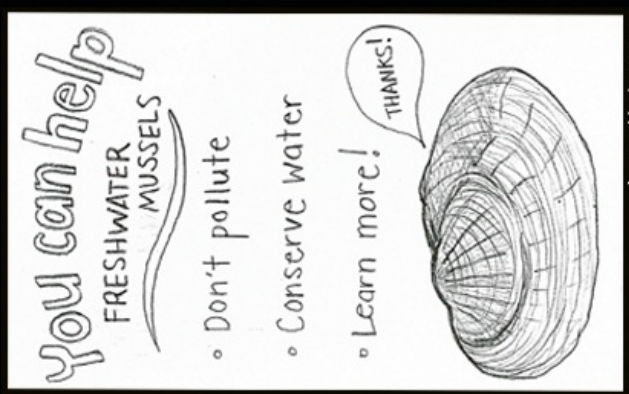 You can help
FRESHWATER
MUSSELS
• Don't pollute
• Conserve water
• Learn more!
THANKS!